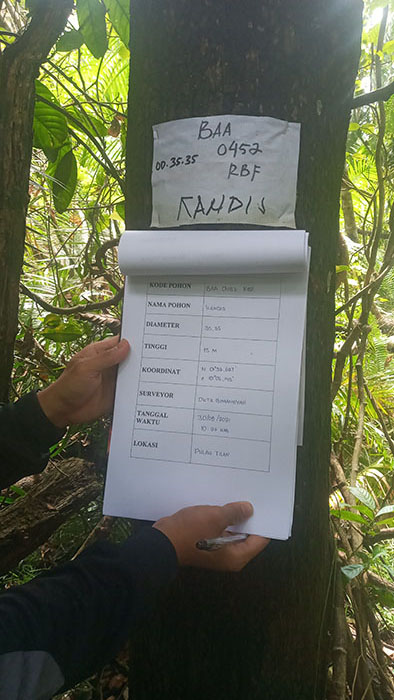 BAA
0452
00.35.35
RBF
KANDIS
KODE POHON BAA 0452 RBF
NAMA POHON KANDIS
DIAMETER 35.35
TINGGI 15 M
KOORDINAT
SURVEYOR
TANGGAL
WAKTU
LOKASI